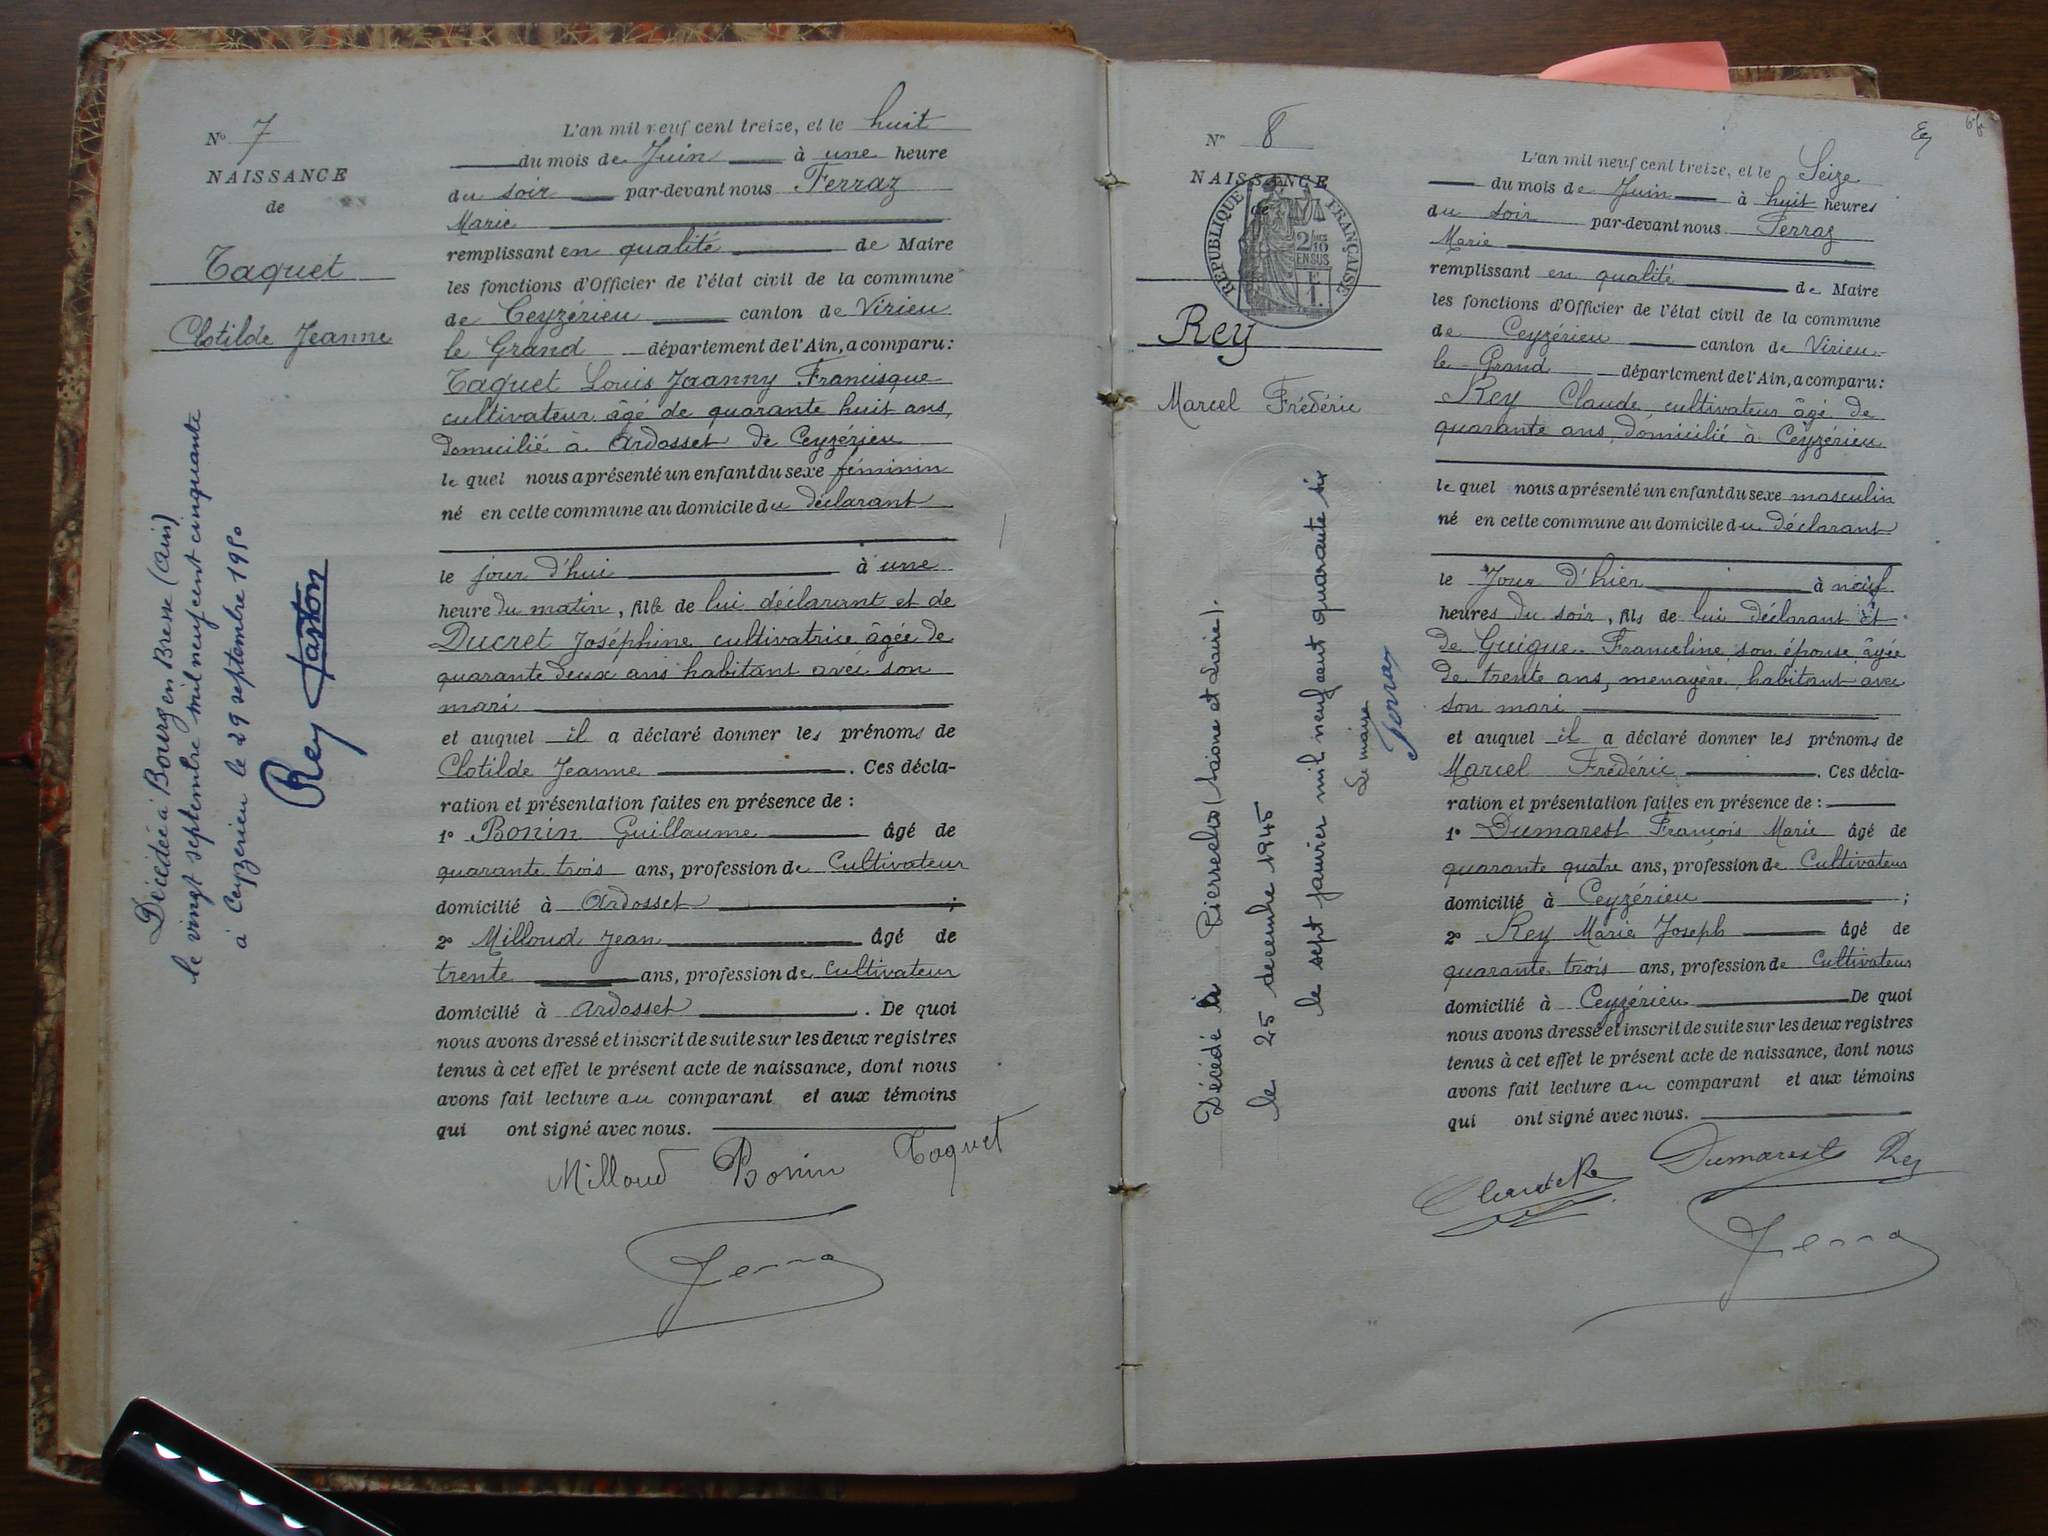 N° 7
NAISSANCE
de
Taquet
Clotilde Jeanne
Décédée à Bourg en Bresse (Ain)
le vingt septembre mil neuf cent cinquante
à Ceyzerieu le 29 septembre 1950
Rey Gaston
L'an mil neuf cent treize, et le huit
du mois de Juin à une heure
du soir par-devant nous Ferraz
Marie
remplissant en qualité de Maire
les fonctions d'Officier de l'état civil de la commune
de Ceyzérieu canton de Virieu
le Grand département de l'Ain, a comparu:
Taquet Louis Joanny Francisque
cultivateur âgé de quarante huit ans,
domicilié à Ardosset de Ceyzérieu
le quel nous a présenté un enfant du sexe féminin
né en cette commune au domicile du déclarant
le jour d'hui à une
heure du matin, fille de lui déclarant et de
Ducret Joséphine cultivatrice âgée de
quarante deux ans habitant avec son
mari
et auquel il a déclaré donner les prénoms de
Clotilde Jeanne. Ces décla-
ration et présentation faites en présence de :
1° Bonin Guillaume âgé de
quarante trois ans, profession de Cultivateur
domicilié à Ardosset ;
2° Milloud Jean âgé de
trente ans, profession de Cultivateur
domicilié à Ardosset. De quoi
nous avons dressé et inscrit de suite sur les deux registres
tenus à cet effet le présent acte de naissance, dont nous
avons fait lecture au comparant et aux témoins
qui ont signé avec nous.
Milloud Bonin Taquet
Ferraz
66
N° 8
NAISSANCE
de
RÉPUBLIQUE FRANÇAISE
2/10
EN SUS
Rey
Marcel Frédéric
Décédé à Pierreclos (Saone et Loire).
le 25 decembre 1945
le sept janvier mil neuf cent quarante six
Le maire
Ferraz
L'an mil neuf cent treize, et le Seize
du mois de Juin à huit heures
du soir par-devant nous Ferraz
Marie
remplissant en qualité de Maire
les fonctions d'Officier de l'état civil de la commune
de Ceyzérieu canton de Virieu
le Grand département de l'Ain, a comparu:
Rey Claude, cultivateur âgé de
quarante ans, domicilié à Ceyzérieu
le quel nous a présenté un enfant du sexe masculin
né en cette commune au domicile du déclarant
le Jour d'hier à neuf
heures du soir, fils de lui déclarant et
de Guigue Franceline son épouse âgée
de trente ans, menagère habitant avec
son mari
et auquel il a déclaré donner les prénoms de
Marcel Frédéric. Ces décla-
ration et présentation faites en présence de :
1° Dumarest François Marie âgé de
quarante quatre ans, profession de Cultivateur
domicilié à Ceyzérieu ;
2° Rey Marie Joseph âgé de
quarante trois ans, profession de Cultivateur
domicilié à Ceyzérieu De quoi
nous avons dressé et inscrit de suite sur les deux registres
tenus à cet effet le présent acte de naissance, dont nous
avons fait lecture au comparant et aux témoins
qui ont signé avec nous.
Claude Rey Dumarest Rey
Ferraz